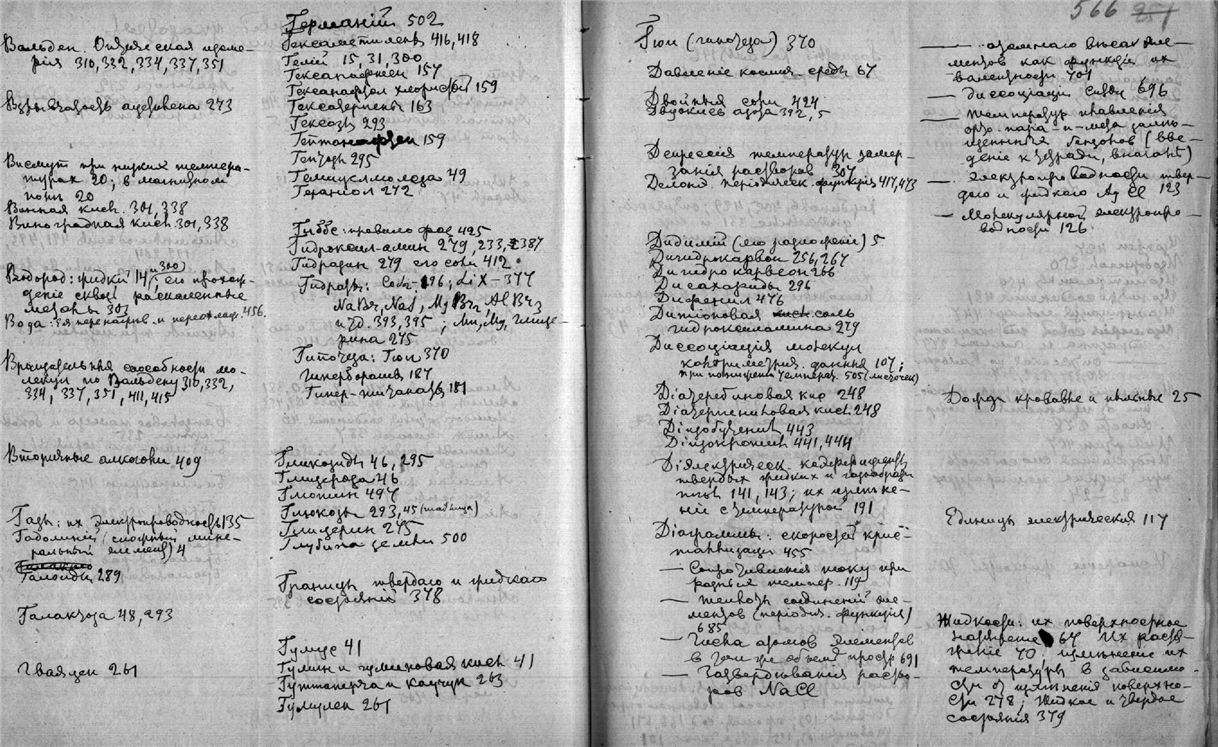 Вальден. Оптическая изоме-
рія 310, 332, 334, 337, 351
Взрывчатость ацетилена 273
Висмут при низких темпера-
турах 20; в магнитном
поле 20
Винная кисл. 301, 338
Виноградная кисл 301, 338
Водород: жидкій 14, и 300; его прохож-
деніе сквозь раскаленные
металлы 303
Вода: ея перегрев. и переохлаж. 456.
Вращательныя способности мо-
лекул по Вальдену 310, 332,
334, 337, 351, 411, 415
Вторичные алкоголи 409
Газы: их электропроводность 135
Гадолиній (спорный мине-
ральный элемент) 4
Галоиды 289
Галактоза 48, 293
Гваяцен 261
Германій 502
Гексаметилен 416, 418
Гелій 15, 31, 300
Гексанафтен 157
Гексанафтен хлористый 159
Гексатерпены 163
Гексозы 293
Гептонафтен 159
Гептозы 295
Гемицеллюлоза 49
Гераніол 272
Гиббс: правило фаз 495
Гидроксил-амин 279, 233, 387
Гидразин 279 его соли 412.
Гидраты: Соли 96; LiX - 377
NaBr, NaJ, MgBr, AlBr3
и др. 393, 395; Mn, Mg, глице-
рина 275
Гипотеза: Гюи 370
Гиперборацит 187
Гипер-титанаты 181
Глюкозиды 46, 295
Глицероза 46
Глютин 497
Глюкозы 293, 45 (таблица)
Глицерин 275
Глубина земли 500
Границы твердаго и жидкаго
состояній 378
Гулизе 41
Гумин и гуминовая кисл 41
Гуттаперча и каучук 263
Гумулен 261
Гюи (гипотеза) 370
Давленіе космич. среды 67
Двойныя соли 424
Двуокись азота 392, 5
Депрессія температур замер-
занія растворов 307
Делонд. періодическ. функція 417, 473
Дидимій (его разложеніе) 5
Дигидрокарвон 256, 267
Дигидрокарвеон 266
Дисахариды 296
Дифенил 476
Дитіоновая соль
гидроксиламина 279
Диссоціація молекул
при повышеніи температ. 505
Діатеребиновая кис 248
Діатерпениловая кисл. 248
Діизобутенил 443
Діизопропил 441, 444
Діэлектрическ. коэффиціенты
твердых жидких и газообразн
тел 141, 143; их измѣне-
ніе с температурой 191
Діаграммы: скоростей крис-
таллизаціи 455
— Сопротивленія току при
разных темпер. 119
— теплоты соединеній эле-
ментов (періодич. функція)
685
— Числа атомов элементов
в том же объемѣ простр 691
— Затвердѣванія раство-
ров NaCl
566 251
— атомнаго вѣса эле-
ментов как функціи их
валентности 701
— диссоціаціи 696
— температур плавленія
орто-пара-и-мета замѣ-
щенных бензолов
— электропроводности твер-
даго и жидкаго Ag Cl 123
— Молекулярной электропро-
водности 126.
Дожди кровавые и пыльные 25
Единицы электрическія 117
Жидкости: их поверхностное
натяженіе 67 Их раство-
реніе 70; измѣненіе их
температуры в зависимо-
сти от измѣненія поверхно-
сти 278; Жидкое и твердое
состоянія 379